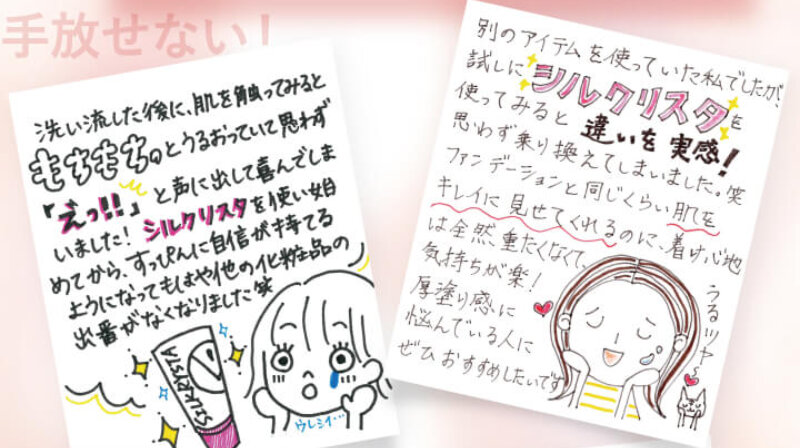 手放せない！
洗い流した後に、肌を触ってみると
もちもちのとうるおっていて思わず
「えっ!!」と声に出して喜んでしま
いました！シルクリスタを使い始
めてから、すっぴんに自信が持てる
ようになってもはや他の化粧品の
出番がなくなりました笑
SILKRISTA
ウレシイ…
別のアイテムを使っていた私でしたが、
試しにシルクリスタを
使ってみると違いを実感！
思わず乗り換えてしまいました。笑
ファンデーションと同じくらい肌を
キレイに見せてくれるのに、着け心地
は全然重たくなくて、
気持ちが楽！
厚塗り感に
悩んでいる人に
ぜひおすすめしたいです
うるツヤ〜